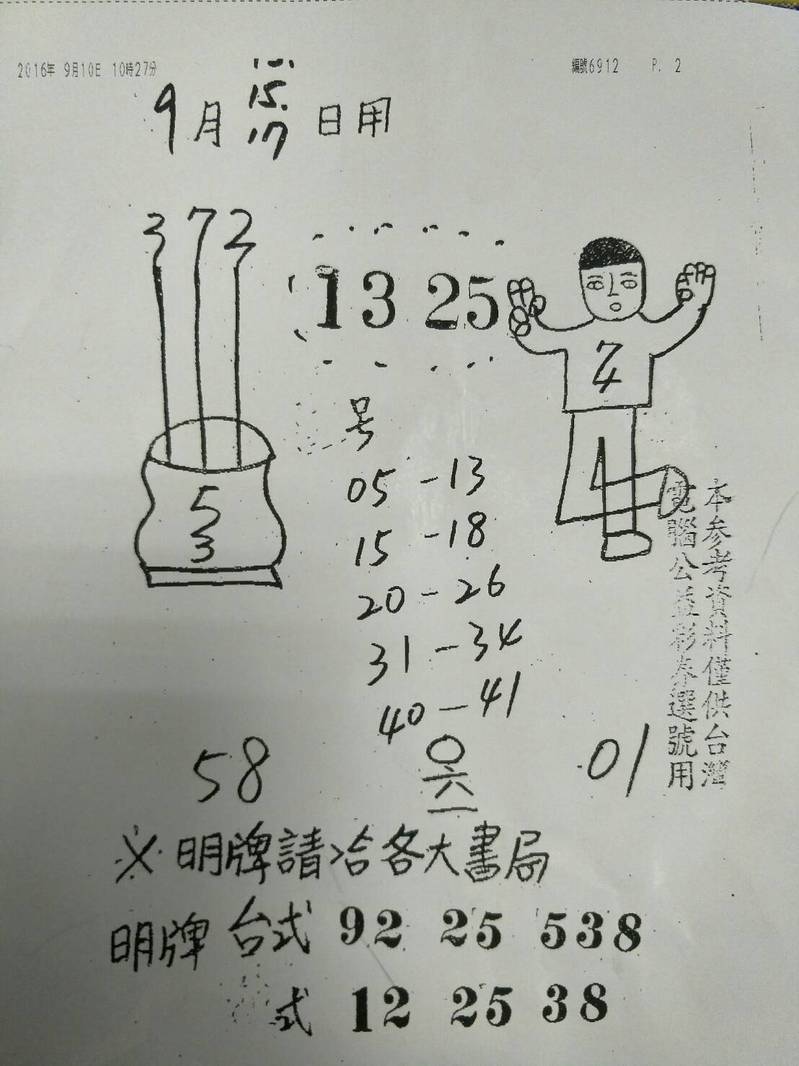 2016年 9月10日 10時27分
編號6912 P. 2
9月 15. 17 日用
3 7 2
13 25
7
4
号
5
3
05-13
15-18
20-26
31-34
40-41
本參考資料僅供台灣
電腦公益彩券選號用
58
01
○
六
一
※明牌請洽各大書局
明牌 台式 92 25 538
式 12 25 38